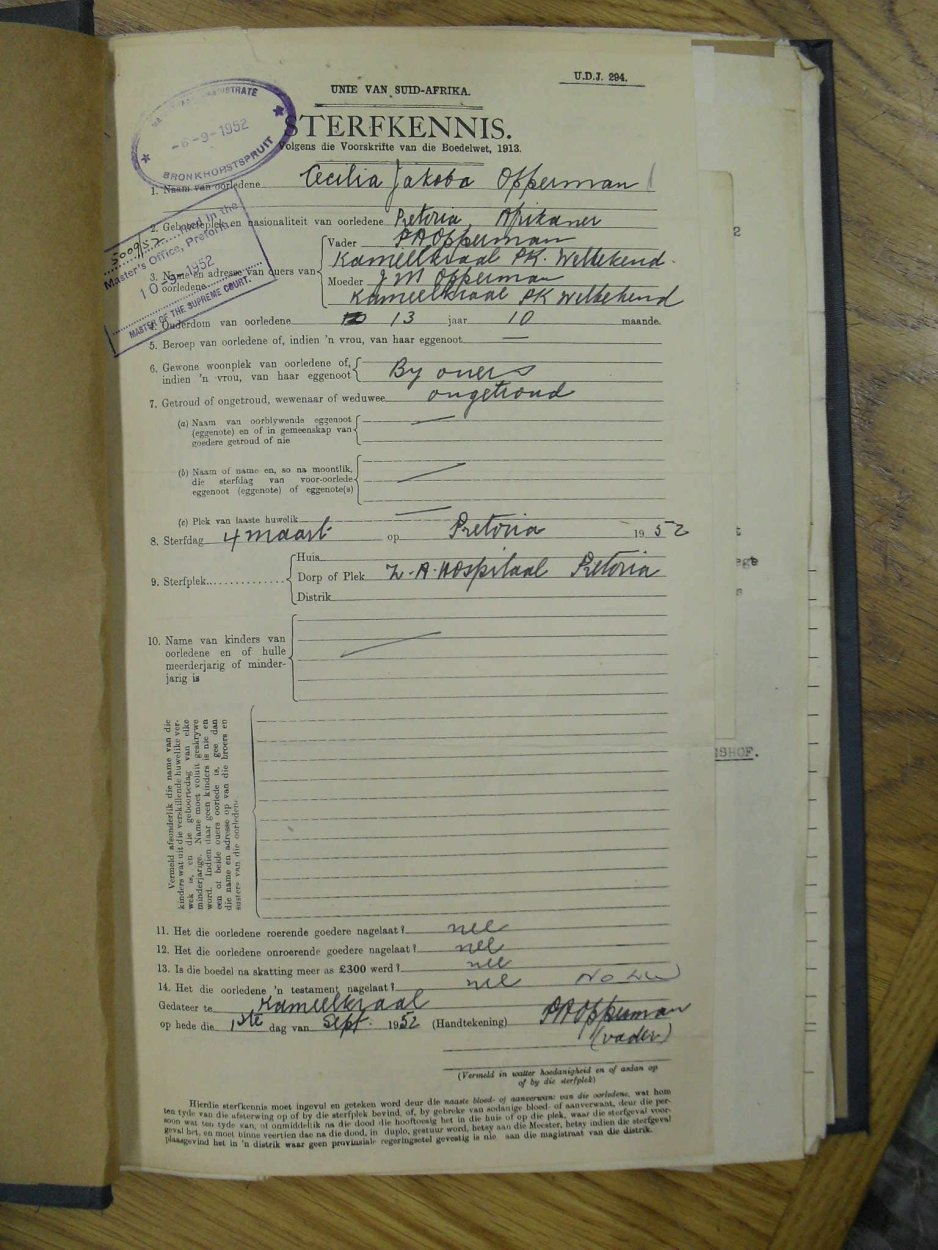 U.D.J. 294.
UNIE VAN SUID-AFRIKA.
STERFKENNIS.
Volgens die Voorskrifte van die Boedelwet, 1913.
MAGISTRATE
-6-9-1952
BRONKHORSTSPRUIT
1. Naam van oorledene Cecilia Jakoba Opperman
2. Geboorteplek en nasionaliteit van oorledene Pretoria Afrikaner
5009/52 filed in the
Master's Office, Pretoria
10-9-1952
MASTER OF THE SUPREME COURT.
3. Name en adresse van ouers van oorledene
Vader P A Opperman
Kameelkraal PK. Weltekend.
Moeder J M Opperman
Kameelkraal PK Weltekend
4. Ouderdom van oorledene 13 jaar 10 maande.
5. Beroep van oorledene of, indien 'n vrou, van haar eggenoot —
6. Gewone woonplek van oorledene of,
indien 'n vrou, van haar eggenoot By ouers
7. Getroud of ongetroud, wewenaar of weduwee ongetroud
(a) Naam van oorblywende eggenoot
(eggenote) en of in gemeenskap van
goedere getroud of nie
(b) Naam of name en, so na moontlik,
die sterfdag van voor-oorlede
eggenoot (eggenote) of eggenote(s)
(c) Plek van laaste huwelik
8. Sterfdag 4 maart op Pretoria 1952
9. Sterfplek
Huis
Dorp of Plek Z.A. Hospitaal Pretoria
Distrik
10. Name van kinders van
oorledene en of hulle
meerderjarig of minder-
jarig is
Vermeld afsonderlik die name van die
kinders wat uit die verskillende huwelike ver-
wek is, en die geboortedag van elke
minderjarige. Name moet voluit geskrywe
word. Indien daar geen kinders is nie en
een of beide ouers oorlede is, gee dan
die name en adresse op van die broers en
susters van die oorledene.
11. Het die oorledene roerende goedere nagelaat? nee
12. Het die oorledene onroerende goedere nagelaat? nee
13. Is die boedel na skatting meer as £300 werd? nee
14. Het die oorledene 'n testament nagelaat? nee
Gedateer te Kameelkraal
op hede die 1ste dag van Sept. 1952 (Handtekening) P A Opperman
(vader)
(Vermeld in watter hoedanigheid en of aldan op
of by die sterfplek)
Hierdie sterfkennis moet ingevul en geteken word deur die naaste bloed- of aanverwant van die oorledene, wat hom
ten tyde van die afsterwing op of by die sterfplek bevind, of, by gebreke van sodanige bloed- of aanverwant, deur die per-
soon wat ten tyde van, of onmiddellik na die dood die hooftoesig het in die huis of op die plek, waar die sterfgeval voor-
geval het, en moet binne veertien dae na die dood, in duplo, gestuur word, hetsy aan die Meester, hetsy indien die sterfgeval
plaasgevind het in 'n distrik waar geen provinsiale regeringsetel gevestig is nie aan die magistraat van die distrik.
SHOF.